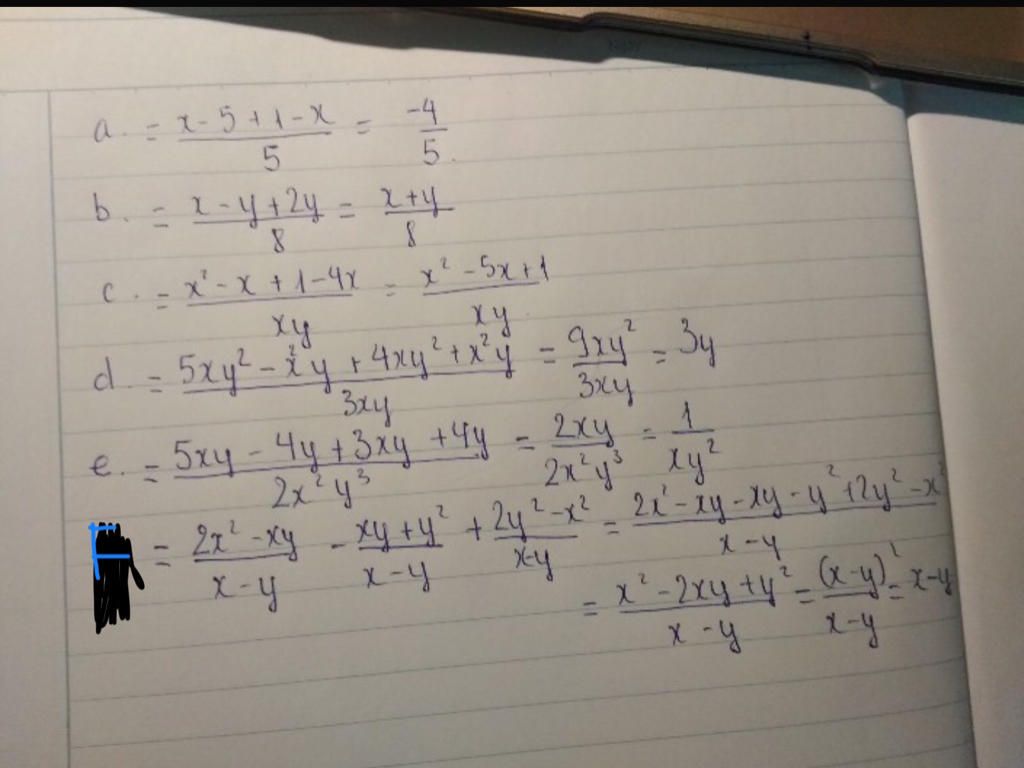 a. = (x - 5 + 1 - x)/5 = -4/5.
b. = (x - y + 2y)/8 = (x + y)/8
c. = (x² - x + 1 - 4x)/xy = (x² - 5x + 1)/xy.
d. = (5xy² - x²y + 4xy² + x²y)/3xy = 9xy²/3xy = 3y
e. = (5xy - 4y + 3xy + 4y)/2x²y³ = 2xy/2x²y³ = 1/xy²
F = (2x² - xy)/(x - y) - (xy + y²)/(x - y) + (2y² - x²)/(x - y) = (2x² - xy - xy - y² + 2y² - x²)/(x - y)
= (x² - 2xy + y²)/(x - y) = (x - y)²/(x - y) = x - y